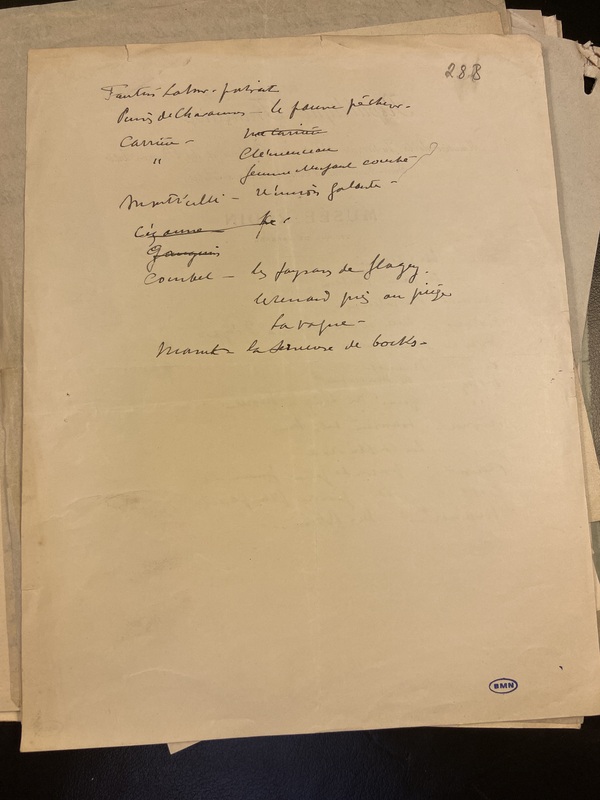 288
Fantin Latour - portrait
Puvis de Chavannes - le pauvre pêcheur -
Carrière - maternité
" Clémenceau
femme
Monticelli - Réunion galante -
Cézanne
Gauguin
Courbet - les paysans de flagey.
le renard pris au piège
la vague -
Manet la serveuse de bocks -
BMN